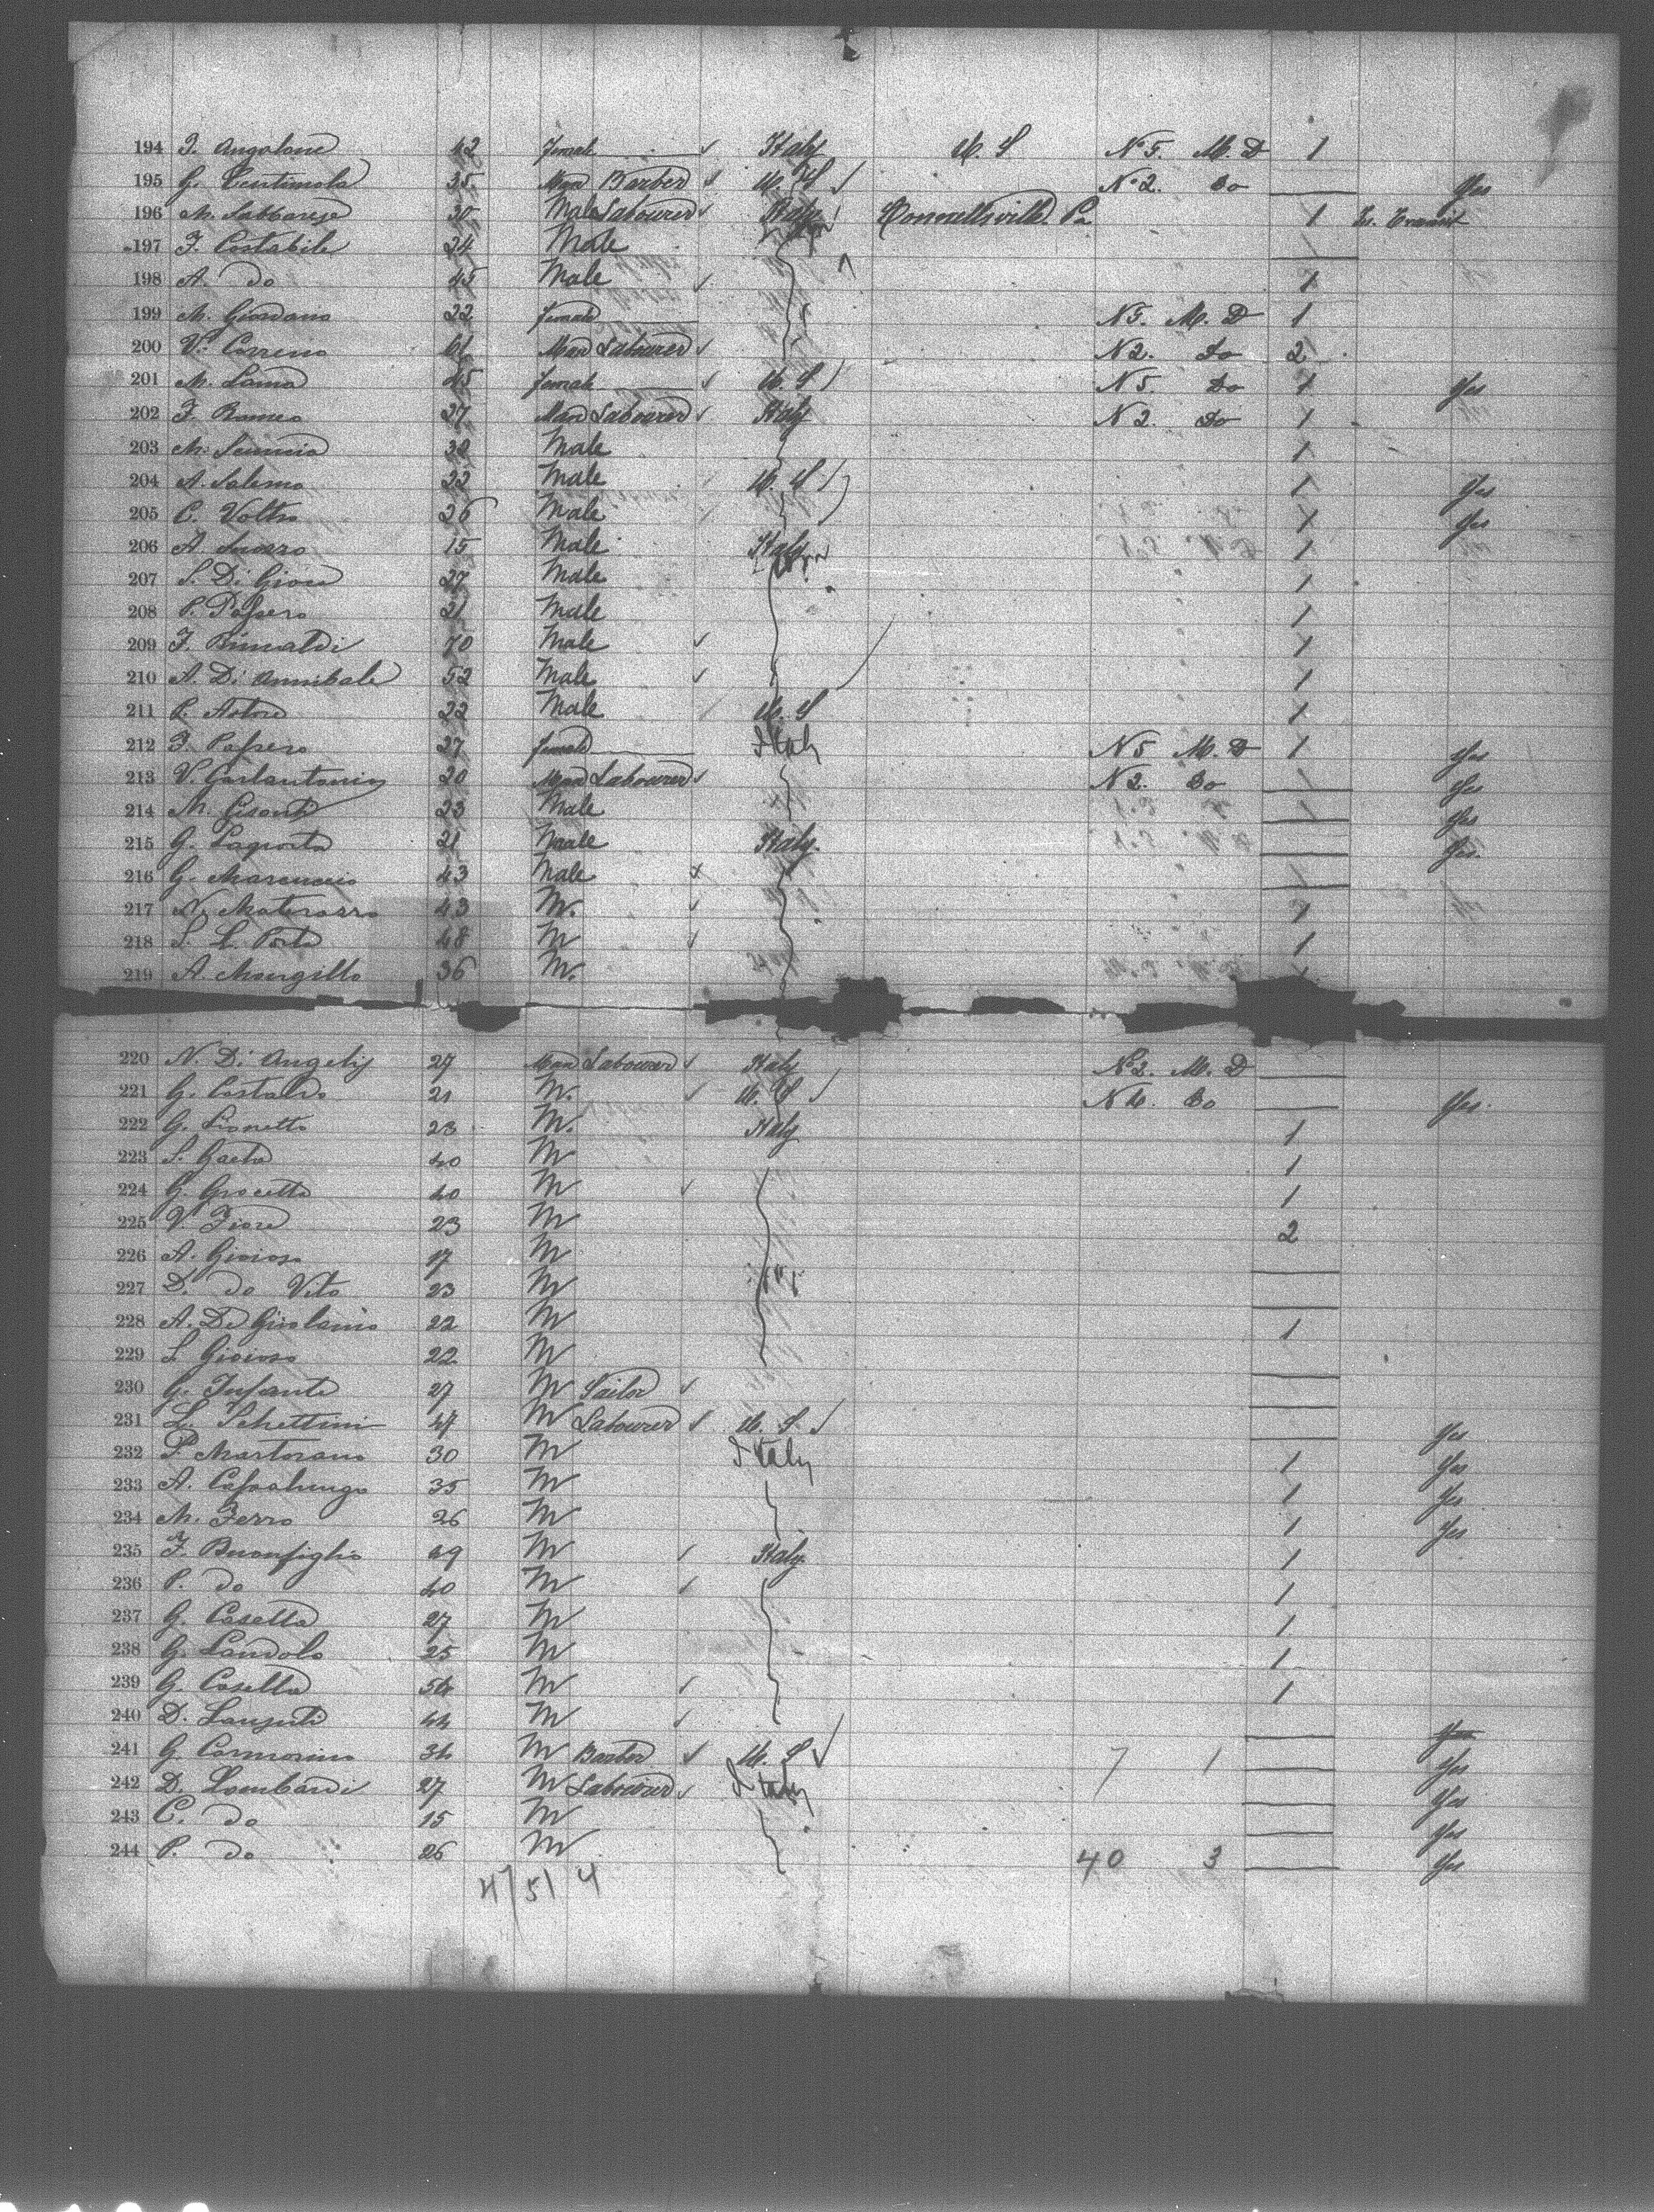 194 F. Angalone 42 female Italy U. S N° 5. M. D 1
195 G. Centimola 35 Man Barber U. S N° 2. Do Yes
196 M. Labbarese 30 Male Labourer Italy Connellsville Pa 1 In Transit
197 F. Costabile 24 Male
198 A. do 45 Male 1
199 M. Giordano 22 female N 5. M. D 1
200 V. Correno Man Labourer N 2. Do 2
201 M. Lama 45 female U. S N 5. Do 1 Yes
202 F. Romeo 27 Man Labourer Italy N 2. Do 1
203 M. 38 Male 1
204 A. Salerno 22 Male U. S 1 Yes
205 C. Voltro 26 Male 1 Yes
206 A. 15 Male Italy 1
207 S. Di Giore 27 Male 1
208 P. Passero 21 Male 1
209 F. Rinaldi 70 Male 1
210 A. Di Annibale 52 Male 1
211 P. Astore 22 Male U. S 1
212 F. Passero 27 female Italy N 5 M. D 1 Yes
213 V. Carlantonio 20 Man Labourer N 2. Do Yes
214 M. Cisonti 23 Male Yes
215 G. Laporta 21 Male Italy. Yes.
216 G. Marcuccio 43 Male
217 N. Materasso 43 M. 1
218 S. L. Porta 48 M 1
219 A. Mangillo 36 M.
220 N. Di Angelis 27 Man Labourer Italy N° 2. M. D
221 G. Costaldo 21 M. U. S N 4. Do Yes.
222 G. Lionetto 23 M. Italy 1
223 S. Gaeta 40 M 1
224 G. Grocetto 40 M 1
225 V. Fiore 23 M 2
226 A. Gioioso 17 M
227 D. do Vito 23 M
228 A. De Girolamo 22 M 1
229 S. Gioioso 22 M
230 G. Infante 27 M Sailor
231 L. Schettini 47 M Labourer U. S. Yes
232 P. Martorano 30 M Italy 1 Yes
233 A. Cassalunga 35 M 1 Yes
234 M. Ferro 26 M 1 Yes
235 F. Buonfiglio 49 M Italy. 1
236 P. do 40 M 1
237 G. Casella 27 M 1
238 G. Landolo 25 M 1
239 G. Casella 54 M 1
240 D. 44 M Yes
241 G. Cammorino 34 M Barber U. S 7 1 Yes
242 D. Lombardi 27 M Labourer Italy Yes
243 C. do 15 M Yes
244 P. do 26 M 40 3 Yes
47 51 4